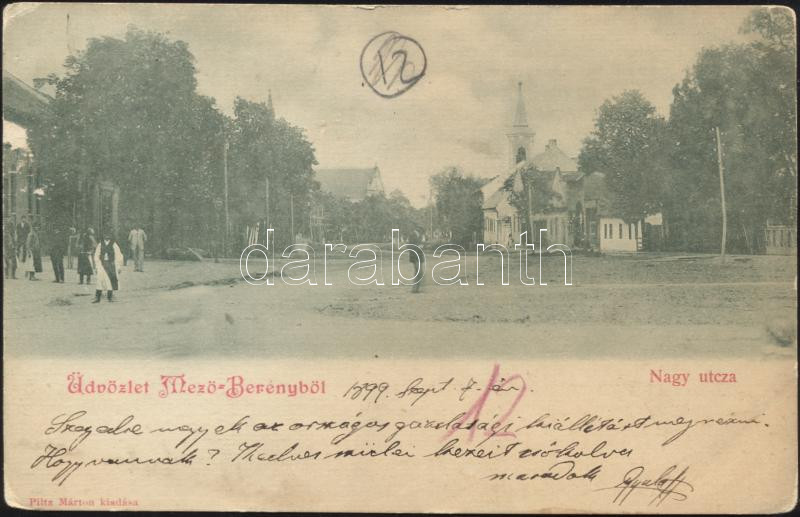 12
darabanth
Üdvözlet Mező-Berényből
1899. Szept. 7. én.
Nagy utcza
12
Szegedre megyek az országos gazdasági kiállítást megnézni.
Hogy vannak? Kedves szülei kezeit csókolva
maradok
Piltz Márton kiadása